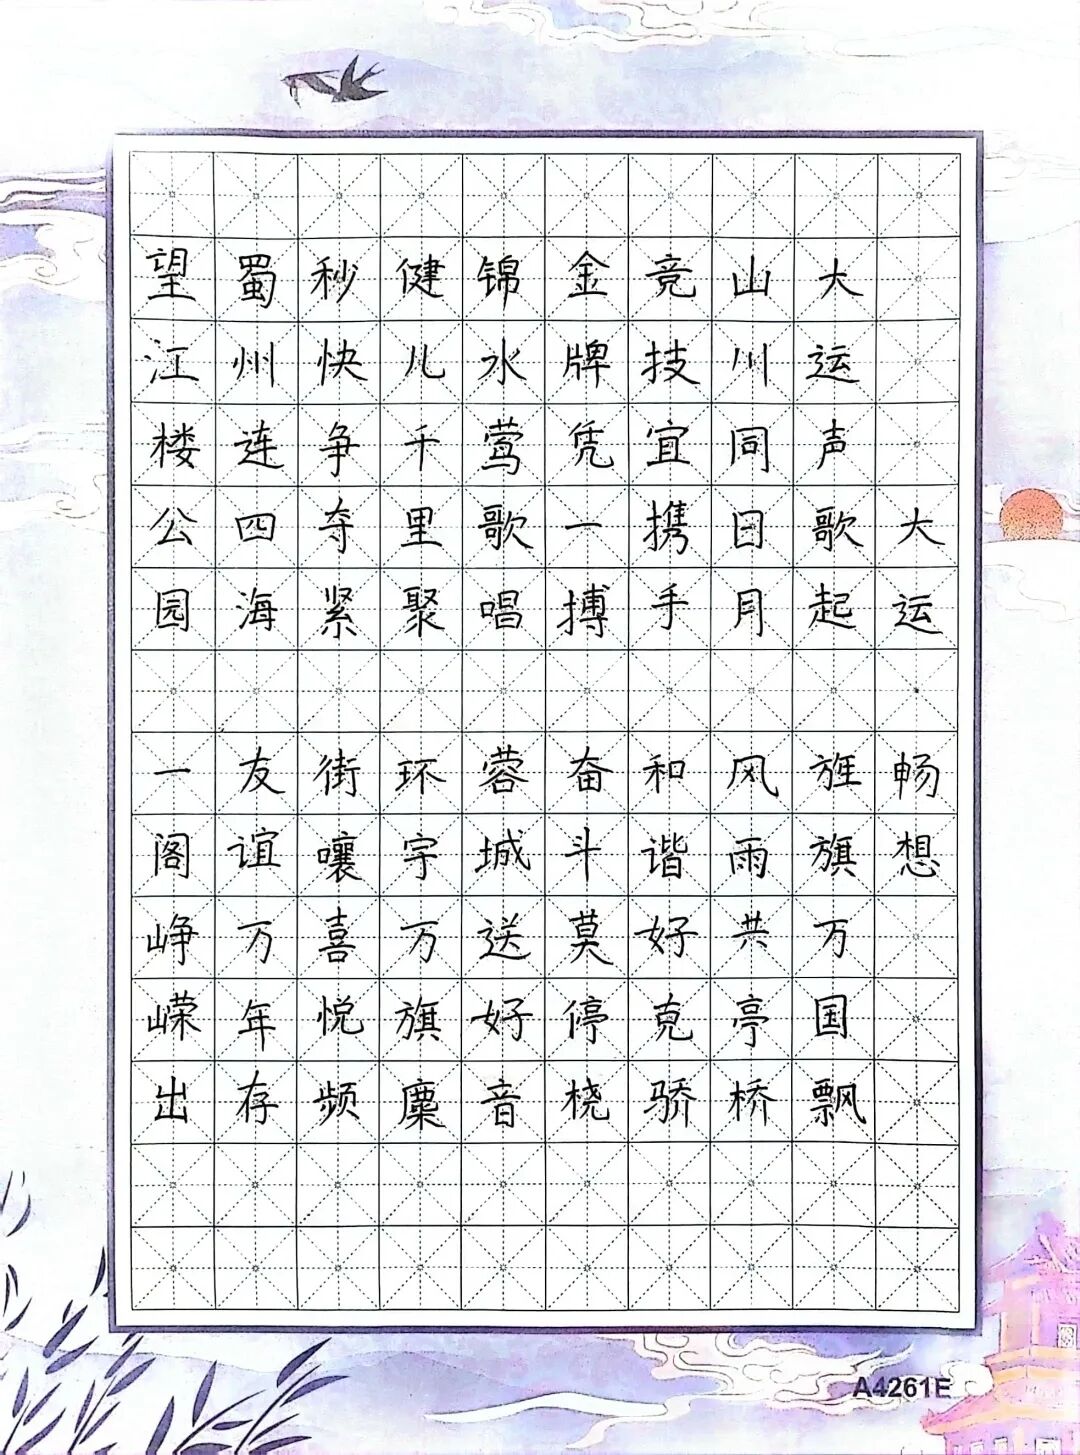 大运畅想
大运声歌起 旌旗万国飘
山川同日月 风雨共亭桥
竞技宜携手 和谐好克骄
金牌凭一搏 奋斗莫停桡
锦水莺歌唱 蓉城送好音
健儿千里聚 环宇万旗麇
秒快争夺紧 街嚷喜悦频
蜀州连四海 友谊万年存
望江楼公园 一阁峥嵘出
A4261E